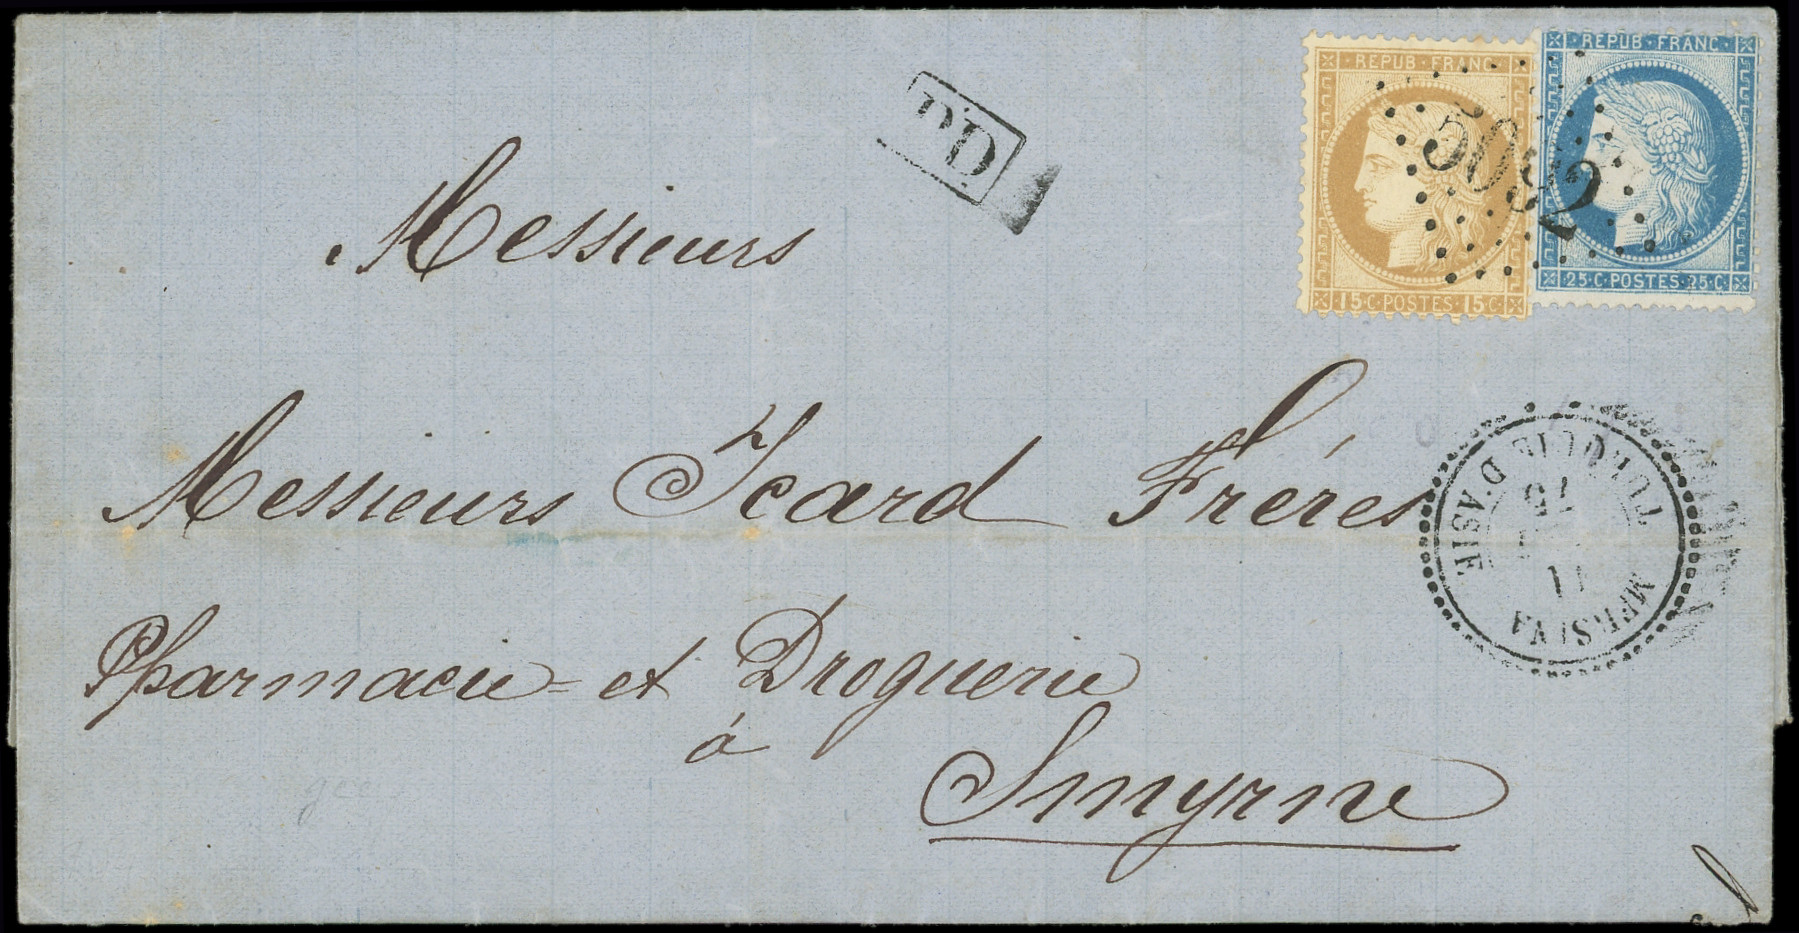 PD
REPUB·FRANC
15·C·POSTES·15·C
REPUB·FRANC
25·C·POSTES·25·C
5092
Messieurs
Messieurs Icard Fréres
Pharmacie = et Droguerie
á
Smyrne
TURQUIE D'ASIE
11
75
MERSINA